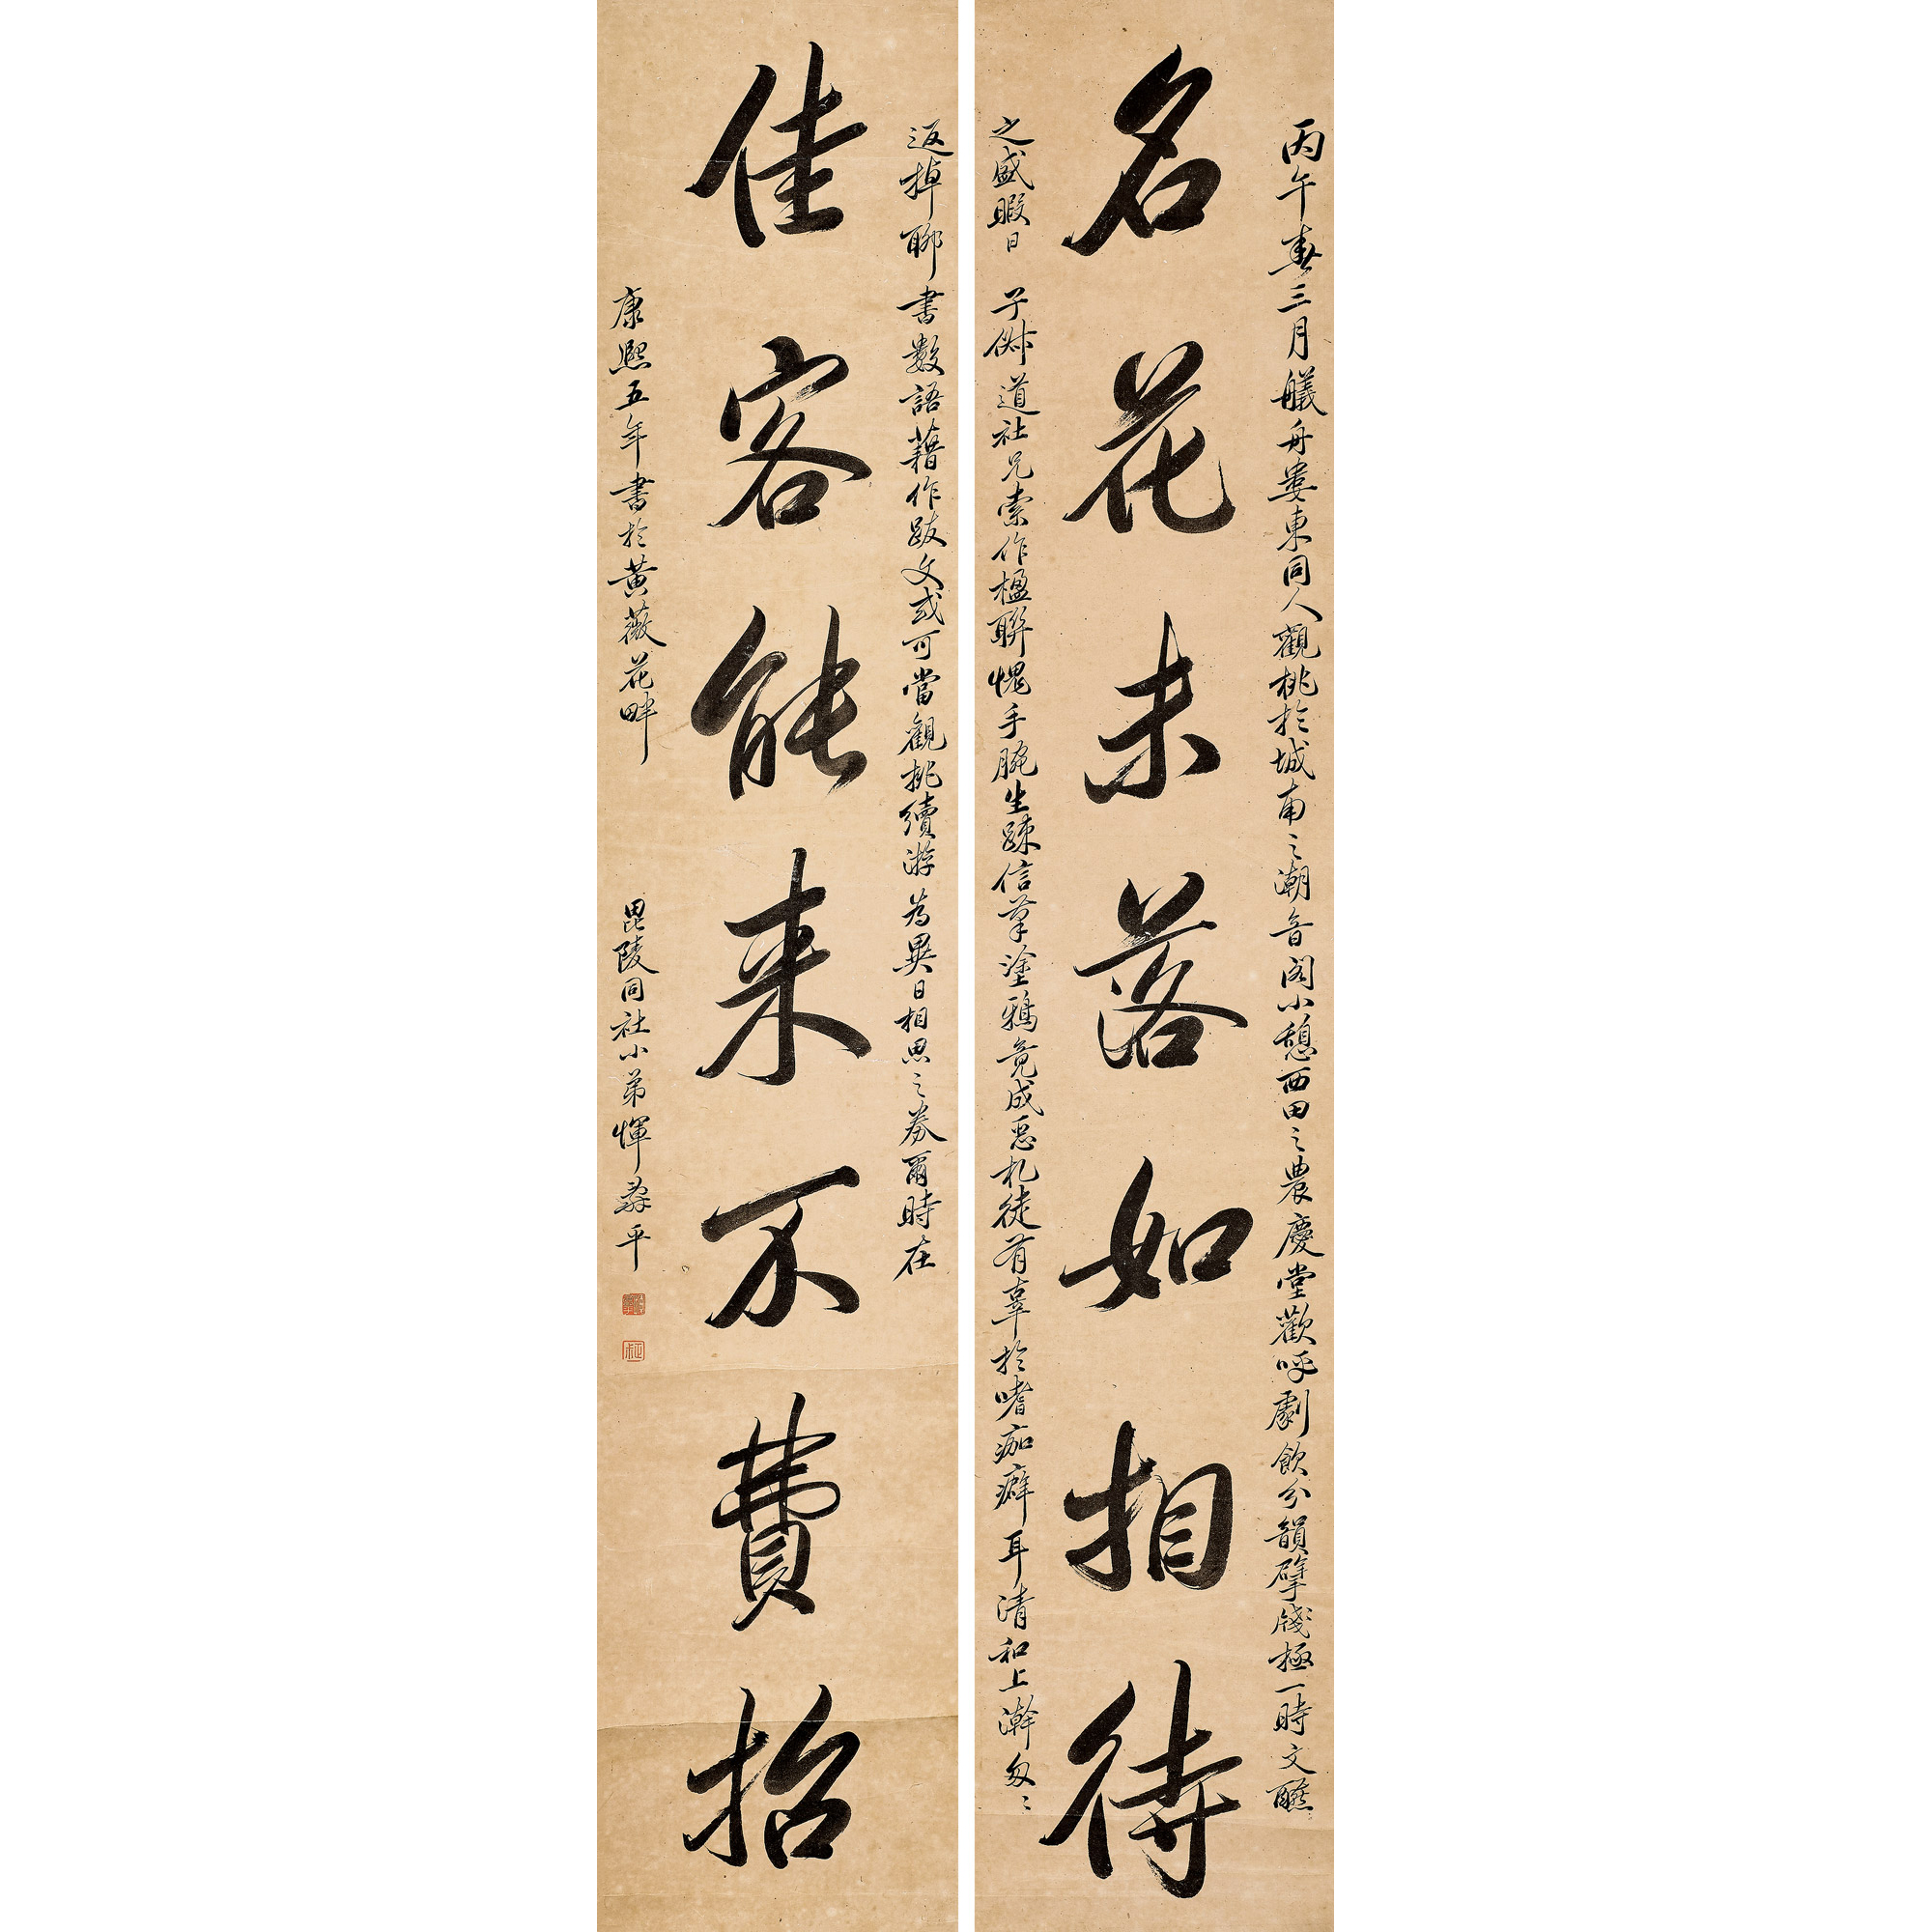 丙午春三月艤舟婁東同人觀桃於城南之潮音閣小憩西田之農慶堂歡呼劇飲分韻擘牋極一時文醼
名花未落如相待
之盛暇日 子俶道社兄索作楹聯愧手腕生疎信筆塗鴉竟成惡札徒有辜於嗜痂癖耳清和上澣匆〻
返掉聊書數語藉作跋文或可當觀桃續游為異日相思之券爾時在
佳客能來不費招
康熙五年書於黃薇花畔 毘陵同社小弟惲壽平